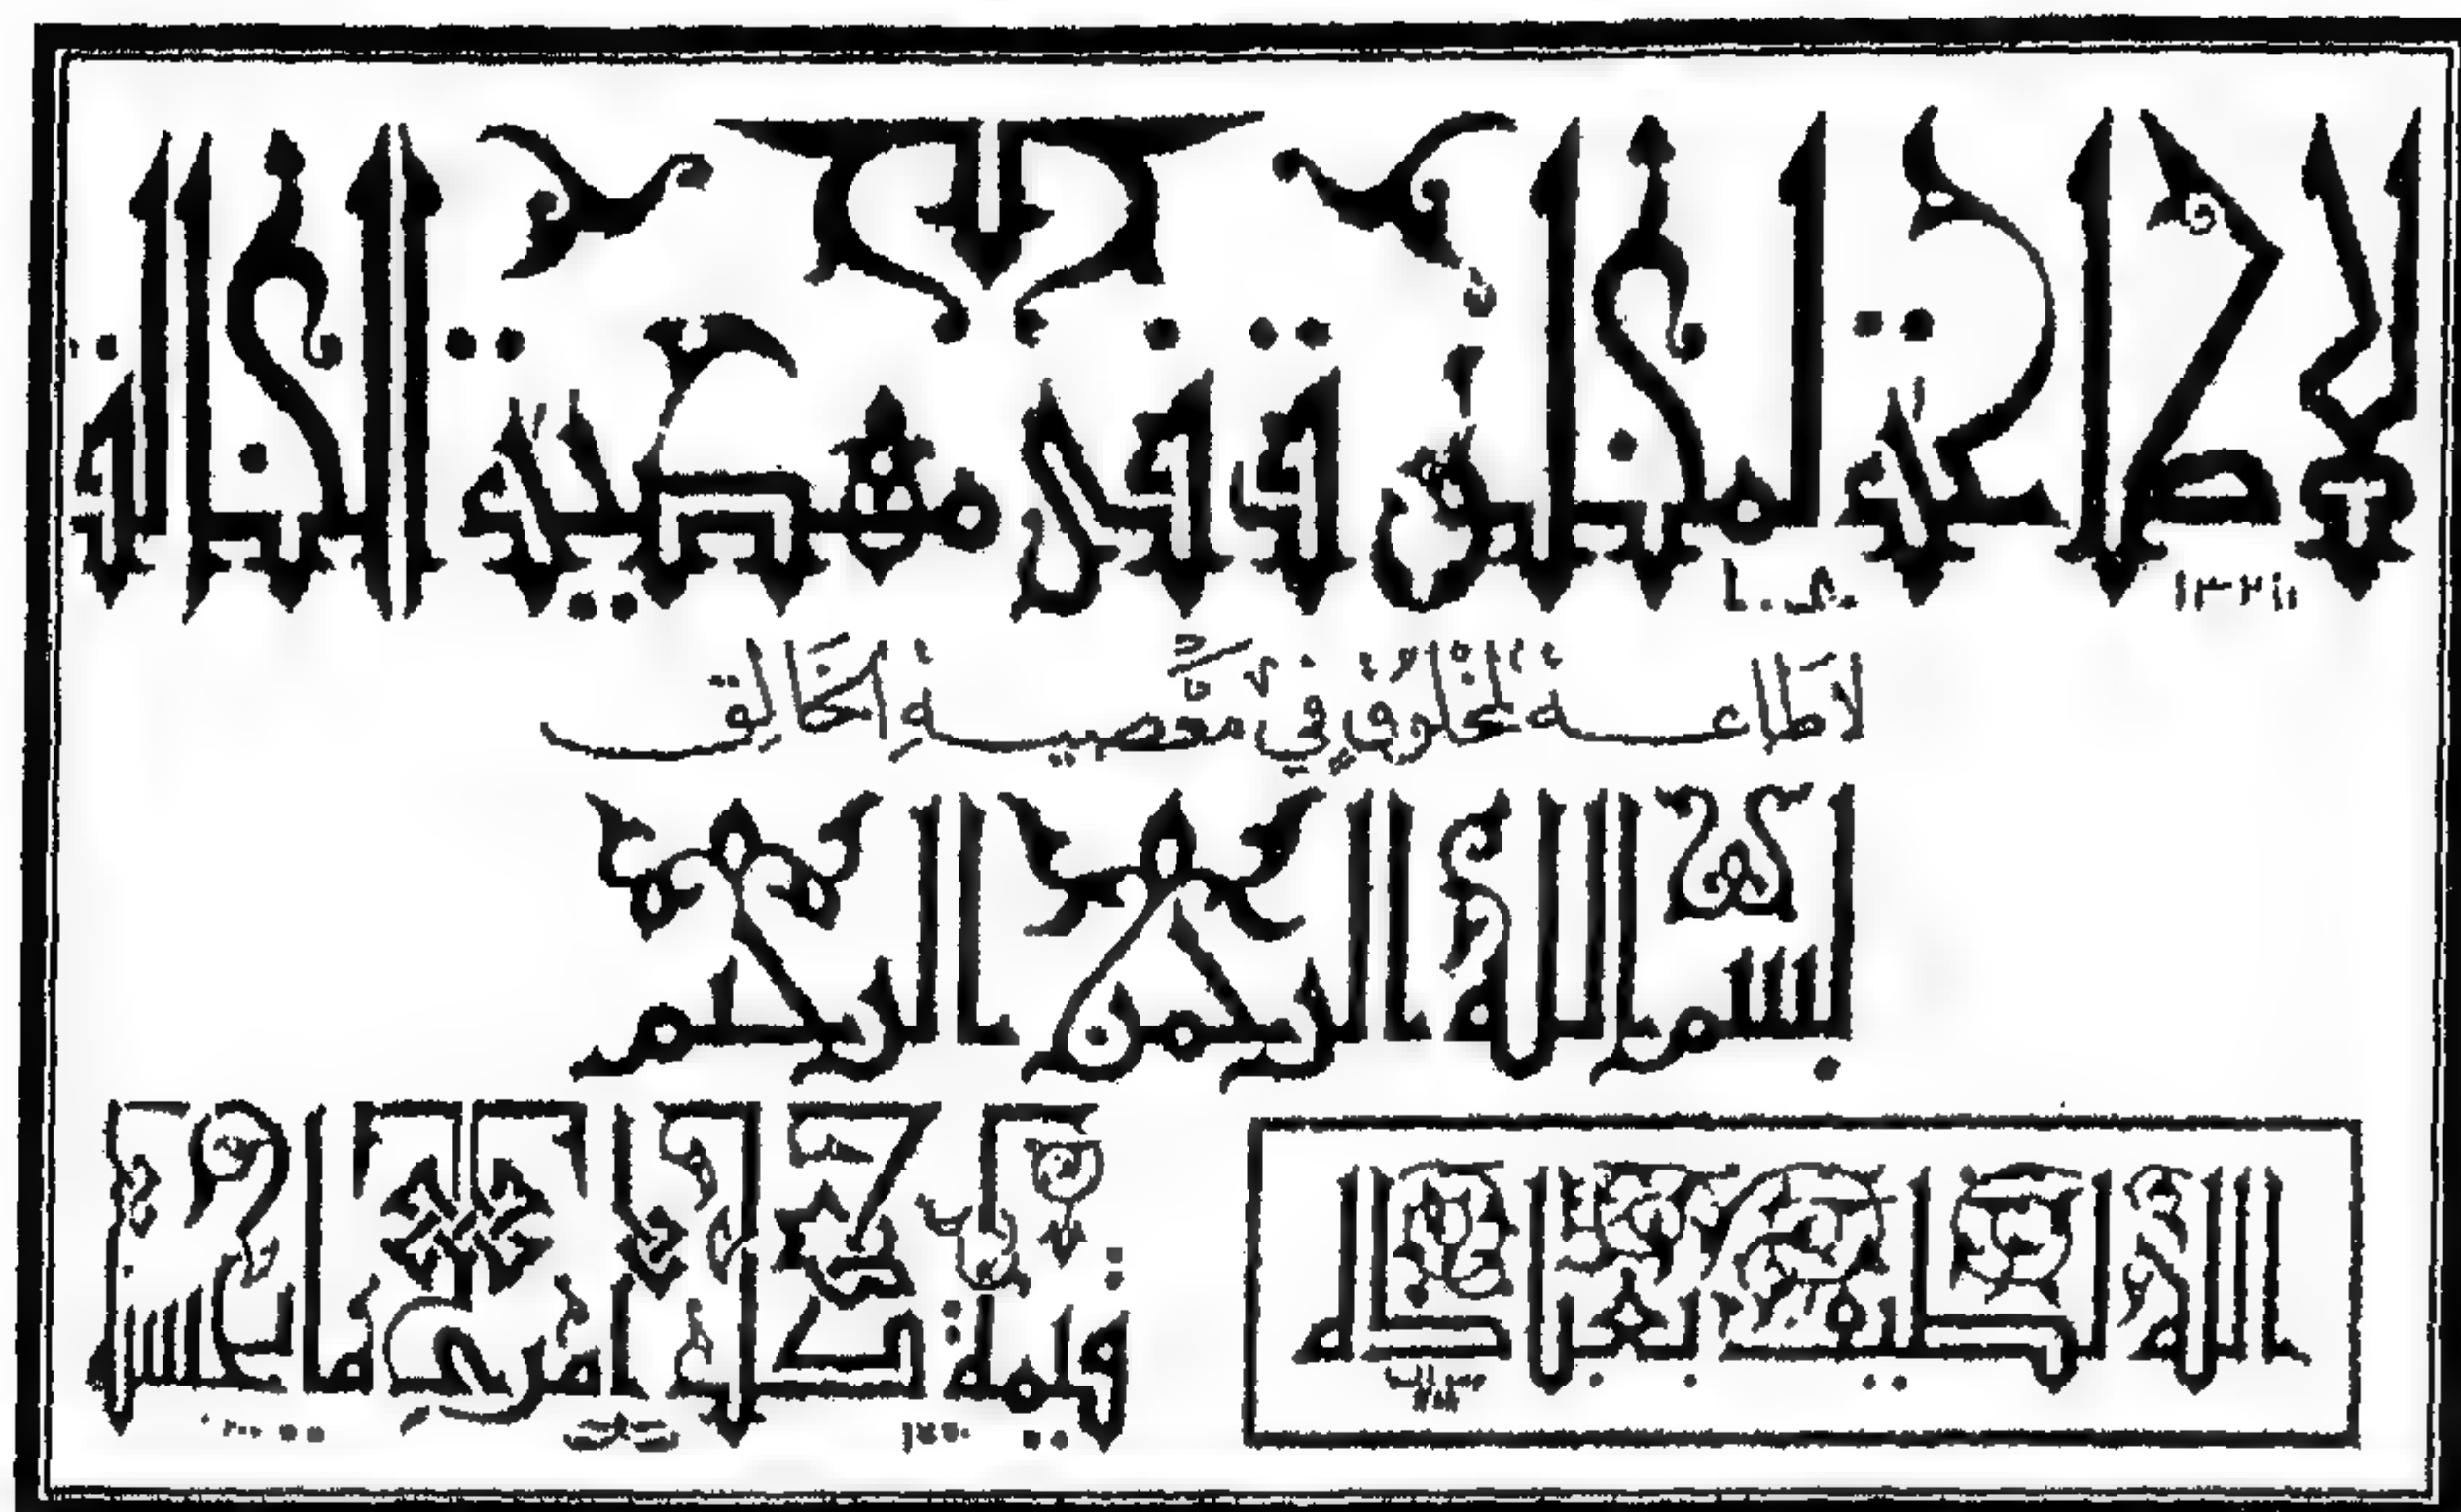 لا طاعة لمخلوق في معصية الخالق
لا طاعة لمخلوق في معصية الخالق
بسم الله الرحمن الرحيم
الله
قيمة كل امرئ ما يحسنه